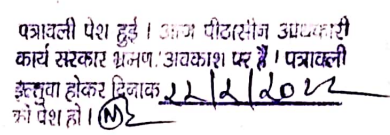 पत्रावली पेश हुई। आज पीठासीन अधिकारी
कार्य सरकार भ्रमण/अवकाश पर है। पत्रावली
इत्तुवा होकर दिनांक 22/2/2022
को पेश हो।